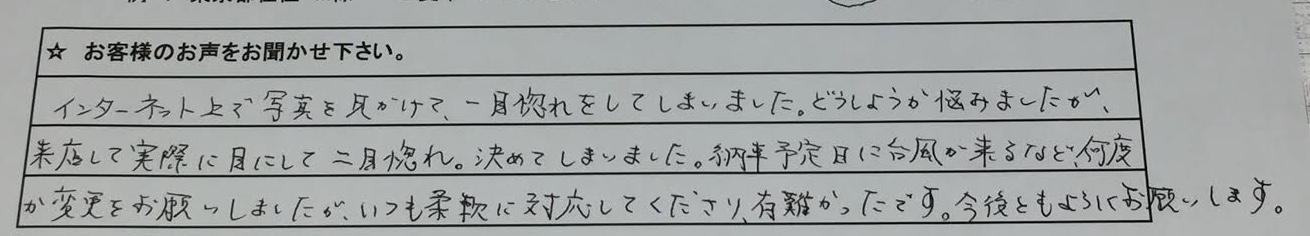 ☆ お客様のお声をお聞かせ下さい。
インターネット上で写真を見かけて、一目惚れをしてしまいました。どうしようか悩みましたが、
来店して実際に目にして二目惚れ。決めてしまいました。納車予定日に台風が来るなど、何度
か変更をお願いしましたが、いつも柔軟に対応してくださり、有難かったです。今後ともよろしくお願いします。